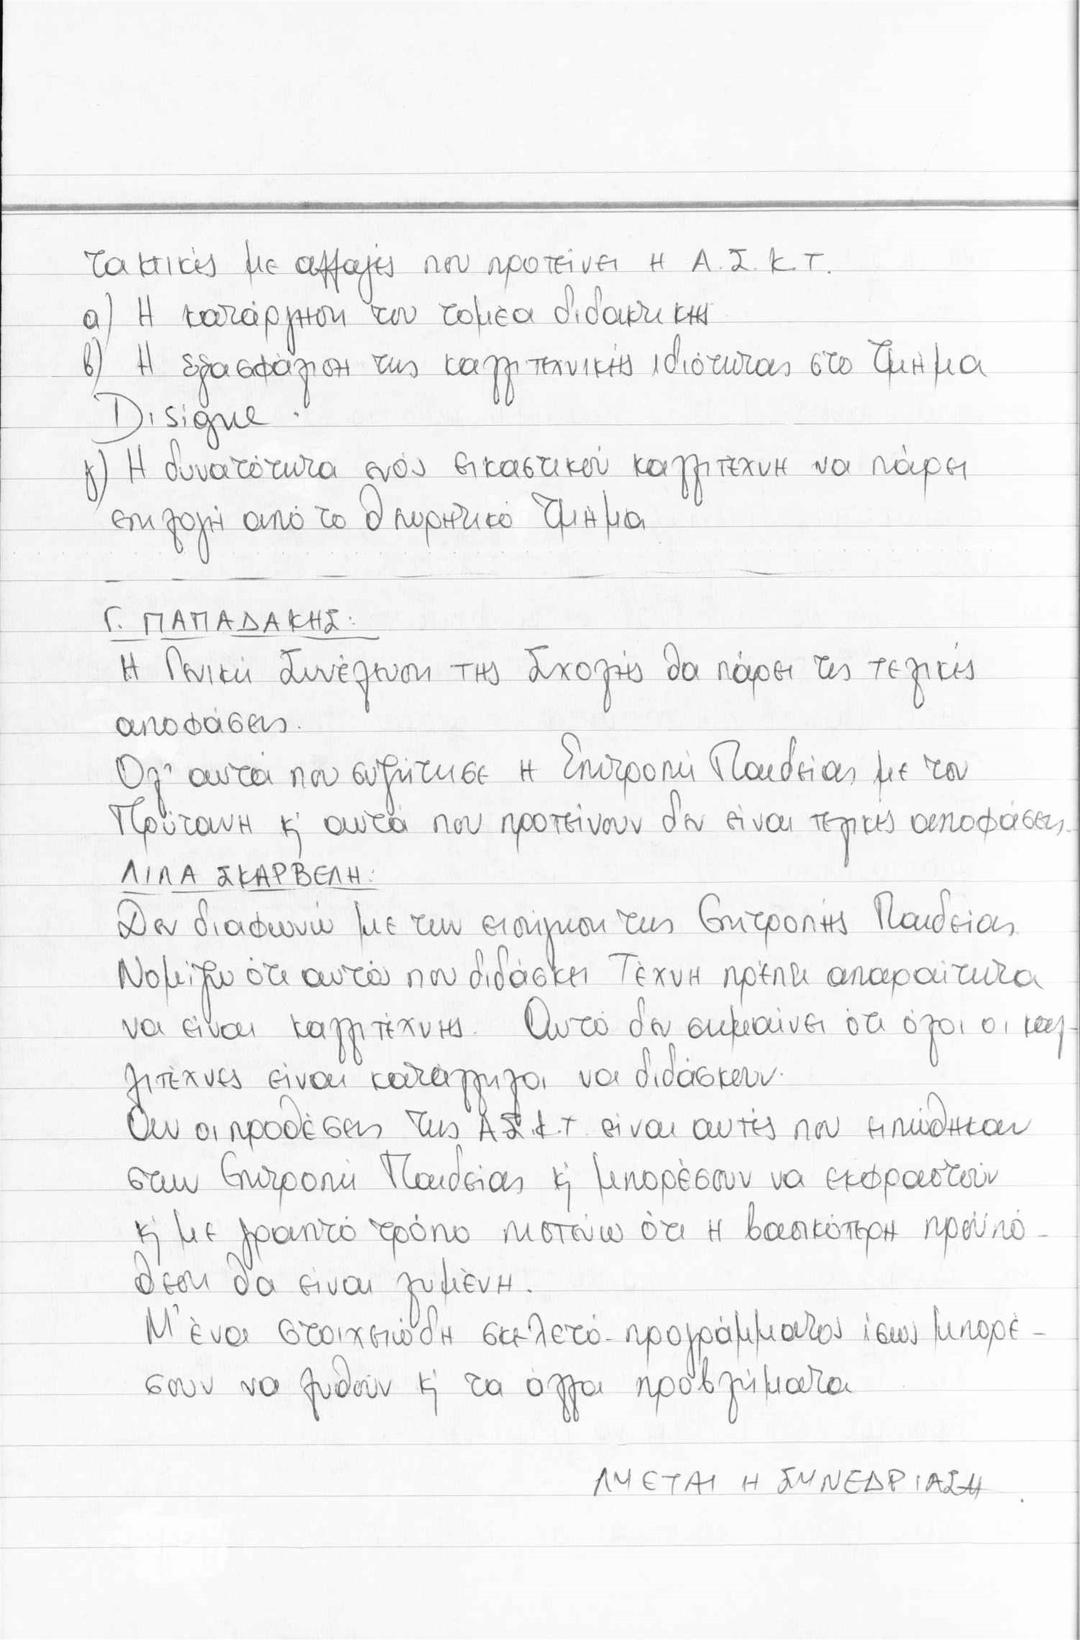 τακτικές με αλλαγές που προτείνει η Α.Σ.Κ.Τ.
α) Η κατάργηση του τομέα διδακτικής
β) Η εξασφάλιση της καλλιτεχνικής ιδιότητας στο Τμήμα
Disigne.
γ) Η δυνατότητα ενός εικαστικού καλλιτέχνη να πάρει
επιλογή από το θεωρητικό Τμήμα
Γ. ΠΑΠΑΔΑΚΗΣ:
Η Γενική Συνέλευση της Σχολής θα πάρει τις τελικές
αποφάσεις.
Ολ' αυτά που συζήτησε η Επιτροπή Παιδείας με τον
Πρύτανη κ' αυτά που προτείνουν δεν είναι τελικές αποφάσεις.
ΛΙΛΑ ΣΚΑΡΒΕΛΗ:
Δεν διαφωνώ με την εισήγηση της Επιτροπής Παιδείας
Νομίζω ότι αυτό που διδάσκει Τέχνη πρέπει απαραίτητα
να είναι καλλιτέχνης. Αυτό δεν σημαίνει ότι όλοι οι καλ-
λιτέχνες είναι κατάλληλοι να διδάσκουν.
Αν οι προθέσεις της Α.Σ.Κ.Τ είναι αυτές που ειπώθηκαν
στην Επιτροπή Παιδείας κ' μπορέσουν να εκφραστούν
κ' με γραπτό τρόπο πιστεύω ότι η βασικότερη προϋπό-
θεση θα είναι λυμένη.
Μ' ένα στοιχειώδη σκελετό προγράμματος ίσως μπορέ-
σουν να λυθούν κ' τα άλλα προβλήματα
ΛΥΕΤΑΙ Η ΣΥΝΕΔΡΙΑΣΗ.